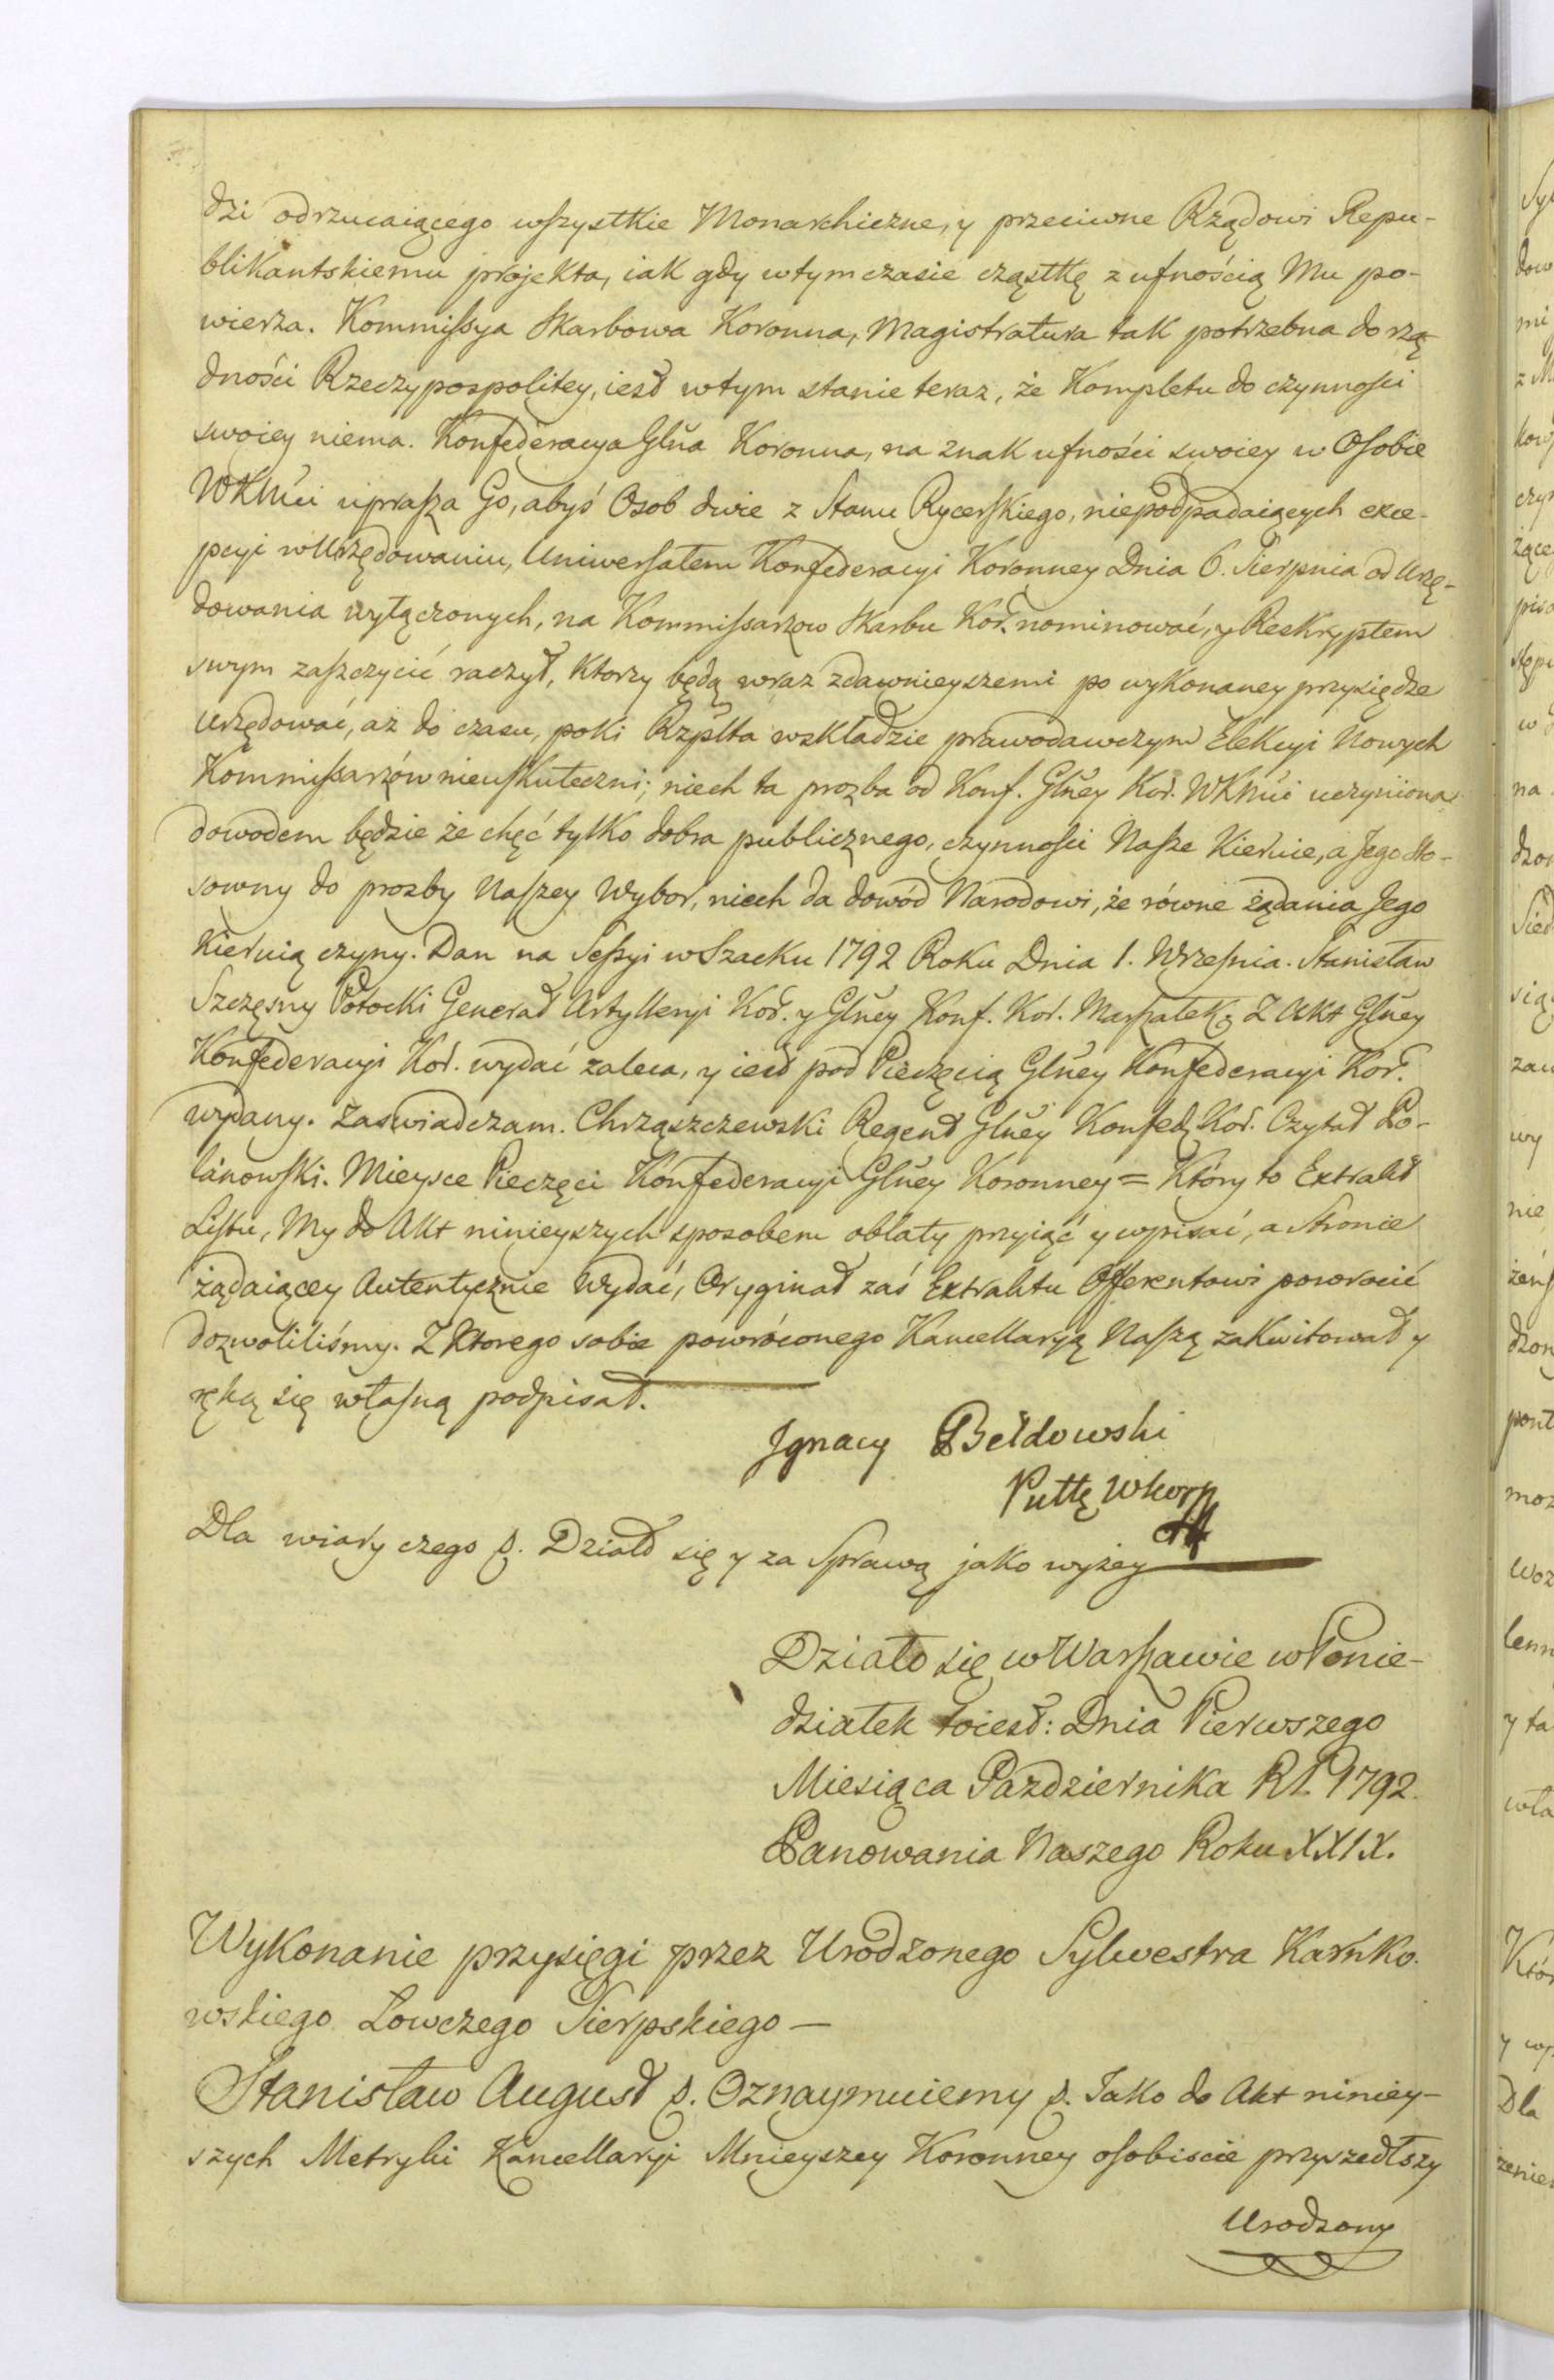 dzi odrzucaiącego wszystkie Monarchiczne, y przeciwne Rządowi Repu-
blikantskiemu projekta, iak gdy wtym czasie cząstkę z ufnością Mu po-
wierza. Kommissya Skarbowa Koronna, Magistratura tak potrzebna do rzą
dności Rzeczypospolitey, iest wtym stanie teraz, że Kompletu do czynności
swoiey niema. Konfederacya Glna Koronna, na znak ufności swoiey w Osobie
WKMci uprasza Go, abyś Osob dwie z Stanu Rycerskiego, niepodpadaiących exce-
pcyi w Urzędowaniu, Uniwersałem Konfederacyi Koronney Dnia 6. Sierpnia od Urzę-
dowania wyłączonych, na Kommissarzow Skarbu Kor. nominować, y Reskryptem
swym zaszczycić raczył, Ktorzy będą wraz zdawnieyszemi po wykonaney przysiędze
urzędować, aż do czasu, poki Rzplta wskładzie prawodawczym Elekcyi Nowych
Kommissarzów nieuskuteczni; niech ta prozba od Konf. Glney Kor. WKMci uczyniona
dowodem będzie że chęć tylko dobra publicznego, czynności Nasze Kieruie, a Jego sto-
sowny do prozby Naszey Wybor, niech da dowód Narodowi, że równe żądania Jego
Kieruią czyny. Dan na Sessyi w Szacku 1792 Roku Dnia 1. Września. Stanisław
Szczęsny Potocki Generał Artylleryi Kor. y Glney Konf. Kor. Marszałek. Z Akt Glney
Konfederacyi Kor. wydać zaleca, y iest pod Pieczęcią Glney Konfederacyi Kor.
wydany. Zaswiadczam. Chrząszczewski Regent Glney Konfed. Kor. Czytał Po-
lánowski. Mieysce Pieczęci Konfederacyi Glney Koronney = Który to Extrakt
Listu, My do Akt ninieyszych sposobem oblaty przyiąć y wpisać, a Stronie
żądaiącey Autentycznie Wydać, Oryginał zaś Extraktu Offerentowi powrocić
dozwoliliśmy. Z Ktorego sobie powróconego Kancellaryą Naszą zaKwitował y
ręką się własną podpisał.
Ignacy Bełdowski
Dla wiary czego p. Działo się y za Sprawą jako wyżey
Działo się w Warszawie w Ponie-
działek toiest: Dnia Pierwszego
Miesiąca Pazdziernika RP. 1792.
Panowania Naszego Roku XXIX.
Wykonanie przysięgi przez Urodzonego Sylwestra Karńko.
wskiego Lowczego Sierpskiego —
Stanisław August p. Oznaymuiemy p. Iako do Akt niniey-
szych Metryki Kancellaryi Mnieyszey Koronney osobiscie przyszedłszy
Urodzony